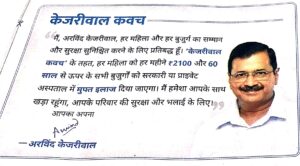 केजरीवाल कवच
“मैं, अरविंद केजरीवाल, हर महिला और हर बुजुर्ग का सम्मान
और सुरक्षा सुनिश्चित करने के लिए प्रतिबद्ध हूँ। ‘केजरीवाल
कवच’ के तहत, हर महिला को हर महीने ₹2100 और 60
साल से ऊपर के सभी बुजुर्गों को सरकारी या प्राइवेट
अस्पताल में मुफ्त इलाज दिया जाएगा। मैं हमेशा आपके साथ
खड़ा रहूंगा, आपके परिवार की सुरक्षा और भलाई के लिए।”
आपका अपना
— अरविंद केजरीवाल